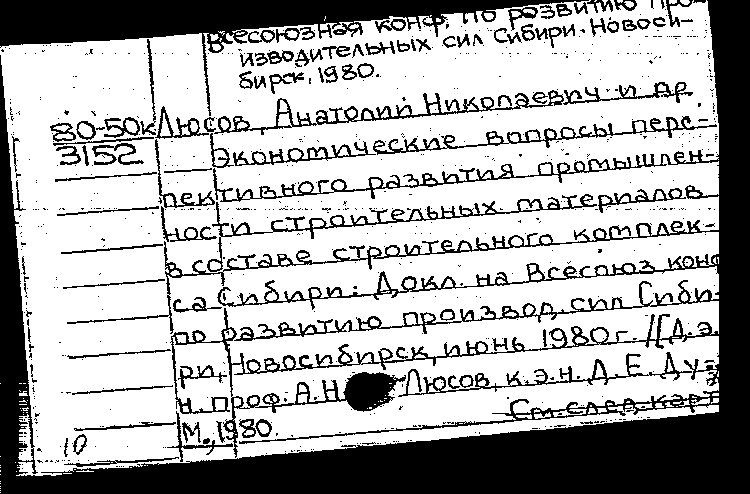 Всесоюзная конф. по развитию про-
изводительных сил Сибири. Новоси-
бирск, 1980.
80-50к Люсов, Анатолий Николаевич и др
3152 Экономические вопросы перс-
пективного развития промышлен-
ности строительных материалов
в составе строительного комплек-
са Сибири: Докл. на Всесоюз конф
по развитию производ. сил Сиби-
ри, Новосибирск, июнь 1980г. /[Д.э.
н. проф. А.Н Люсов, к.э.н. Д. Е. Ду-
М., 1980. См. след. карт
10